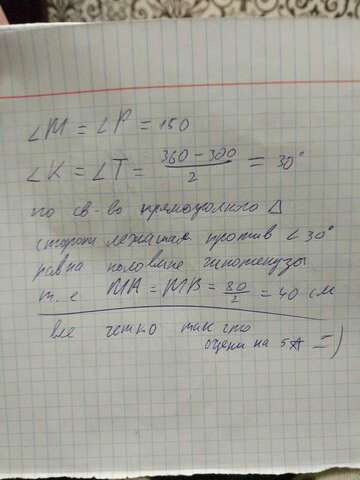 ∠M = ∠P = 150
∠K = ∠T = (360 - 300)/2 = 30°
по св-во прямоуголного Δ
сторона лежащая против ∠30°
равна половине гипотенузы
т.е MA = MB = 80/2 = 40 см
все четко так что
оцени на 5 =)